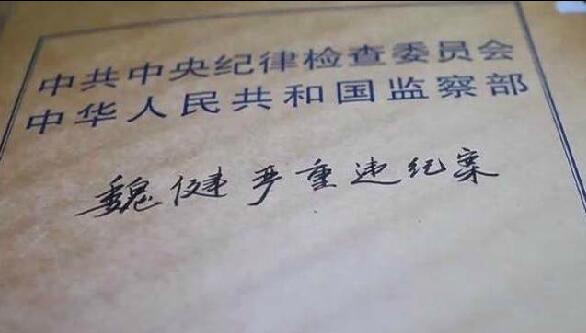 中共中央纪律检查委员会
中华人民共和国监察部
魏健严重违纪案